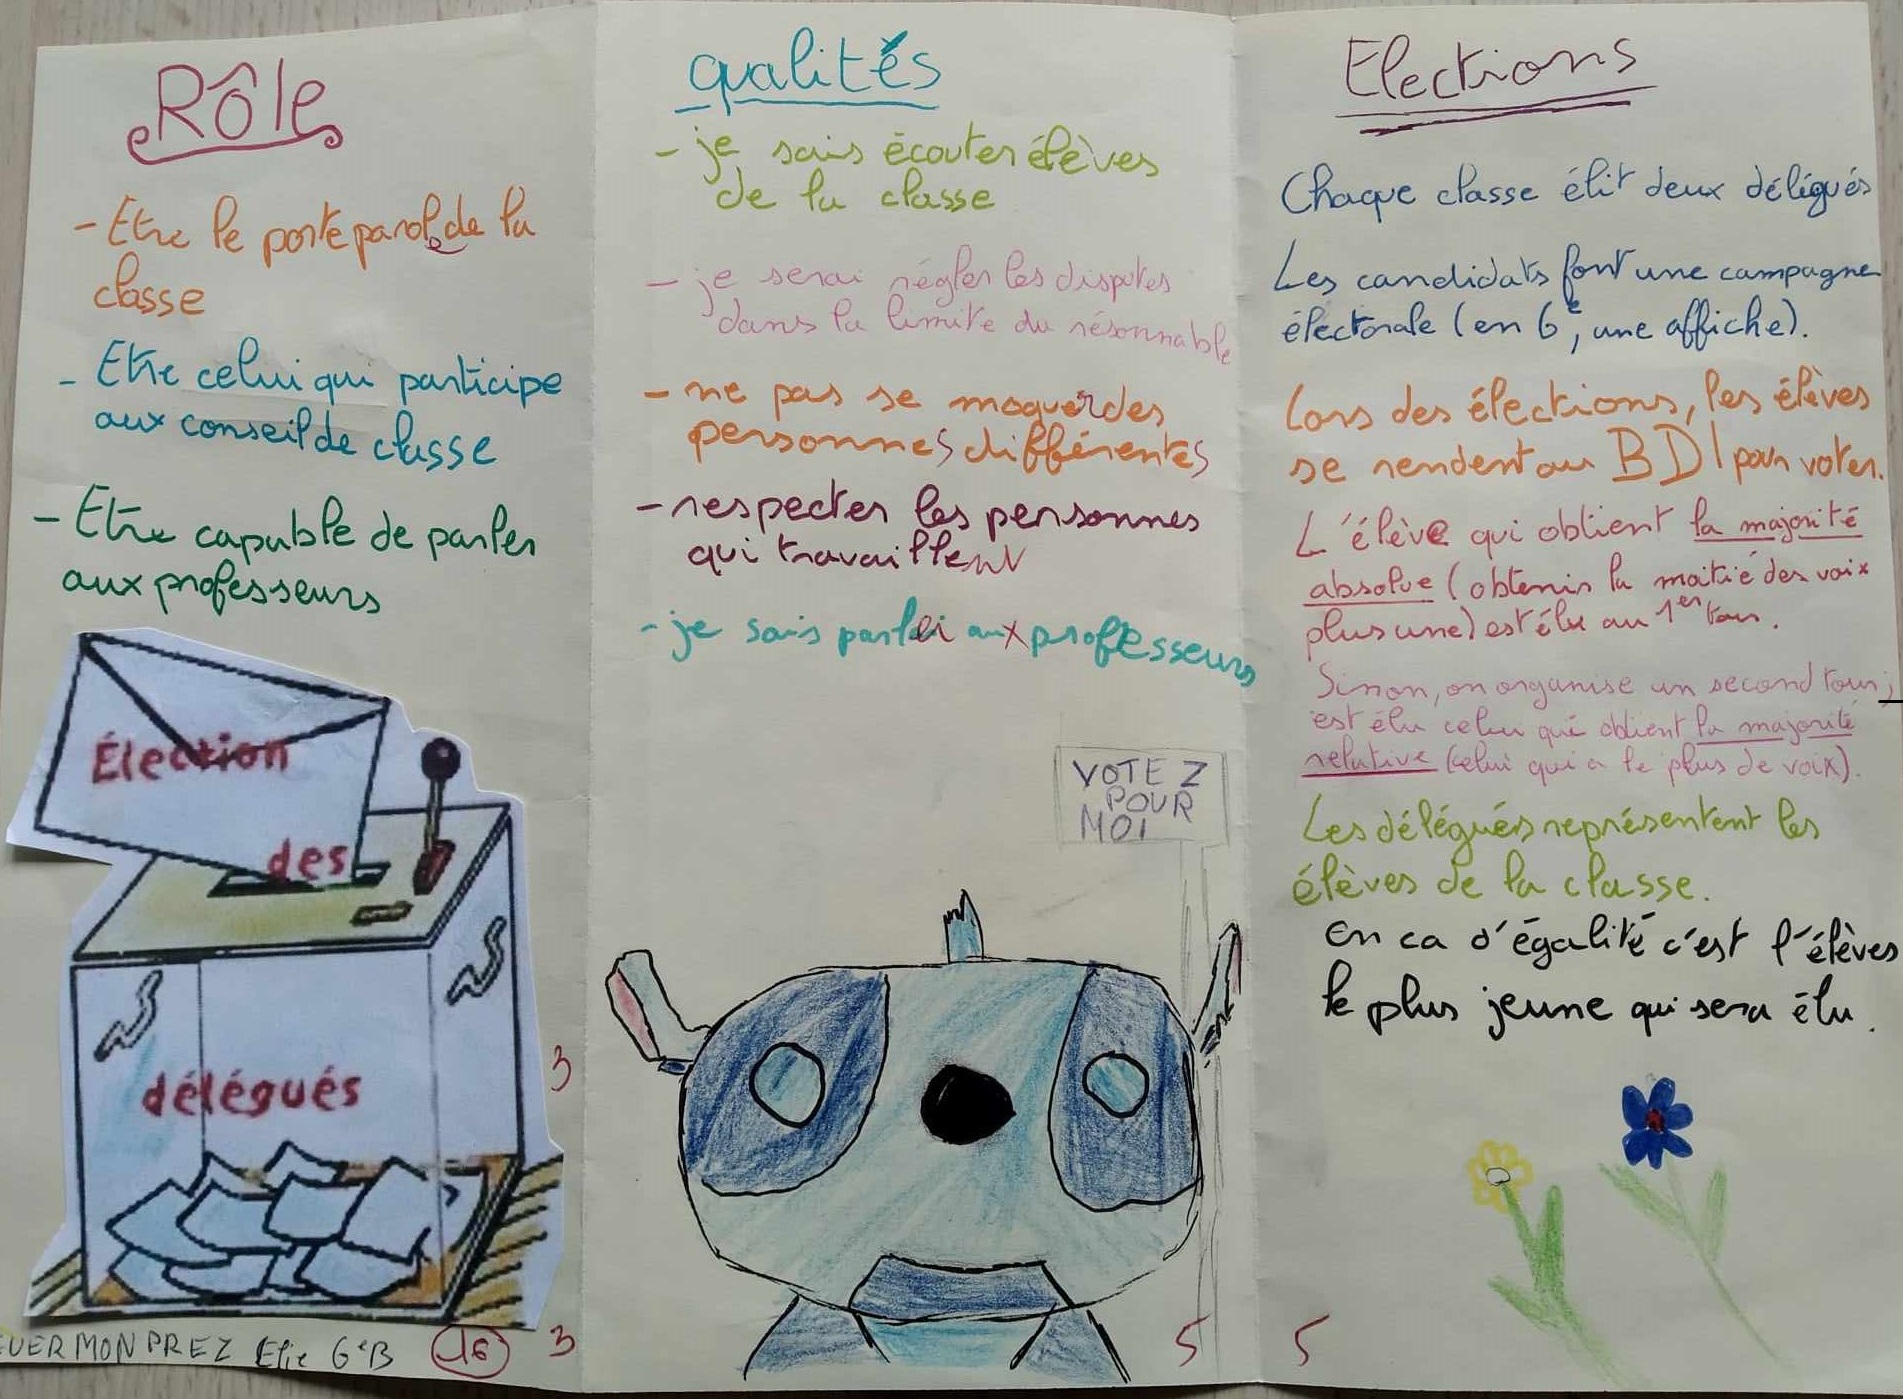 Rôle
- Etre le porte parole de la
classe
- Etre celui qui participe
aux conseil de classe
- Etre capable de parler
aux professeurs
Élection
des
délégués
3
EVERMONPREZ Elie 6eB
16
3
qualités
- je sais écouter élèves
de la classe
- je serai régler les disputes
dans la limite du résonnable
- ne pas se moquer des
personnes différentes
- respecter les personnes
qui travaillent
- je sais parler aux professeurs
VOTEZ
POUR
MOI
5
Elections
Chaque classe élit deux délégués
Les candidats font une campagne
électorale (en 6e, une affiche).
Lors des élections, les élèves
se rendent au BDI pour voter.
L'élève qui obtient la majorité
absolue (obtenir la moitié des voix
plus une) est élu au 1er tour.
Sinon, on organise un second tour ;
est élu celui qui obtient la majorité
relative (celui qui a le plus de voix).
Les délégués représentent les
élèves de la classe.
en ca d'égalité c'est l'élèves
le plus jeune qui sera élu.
5